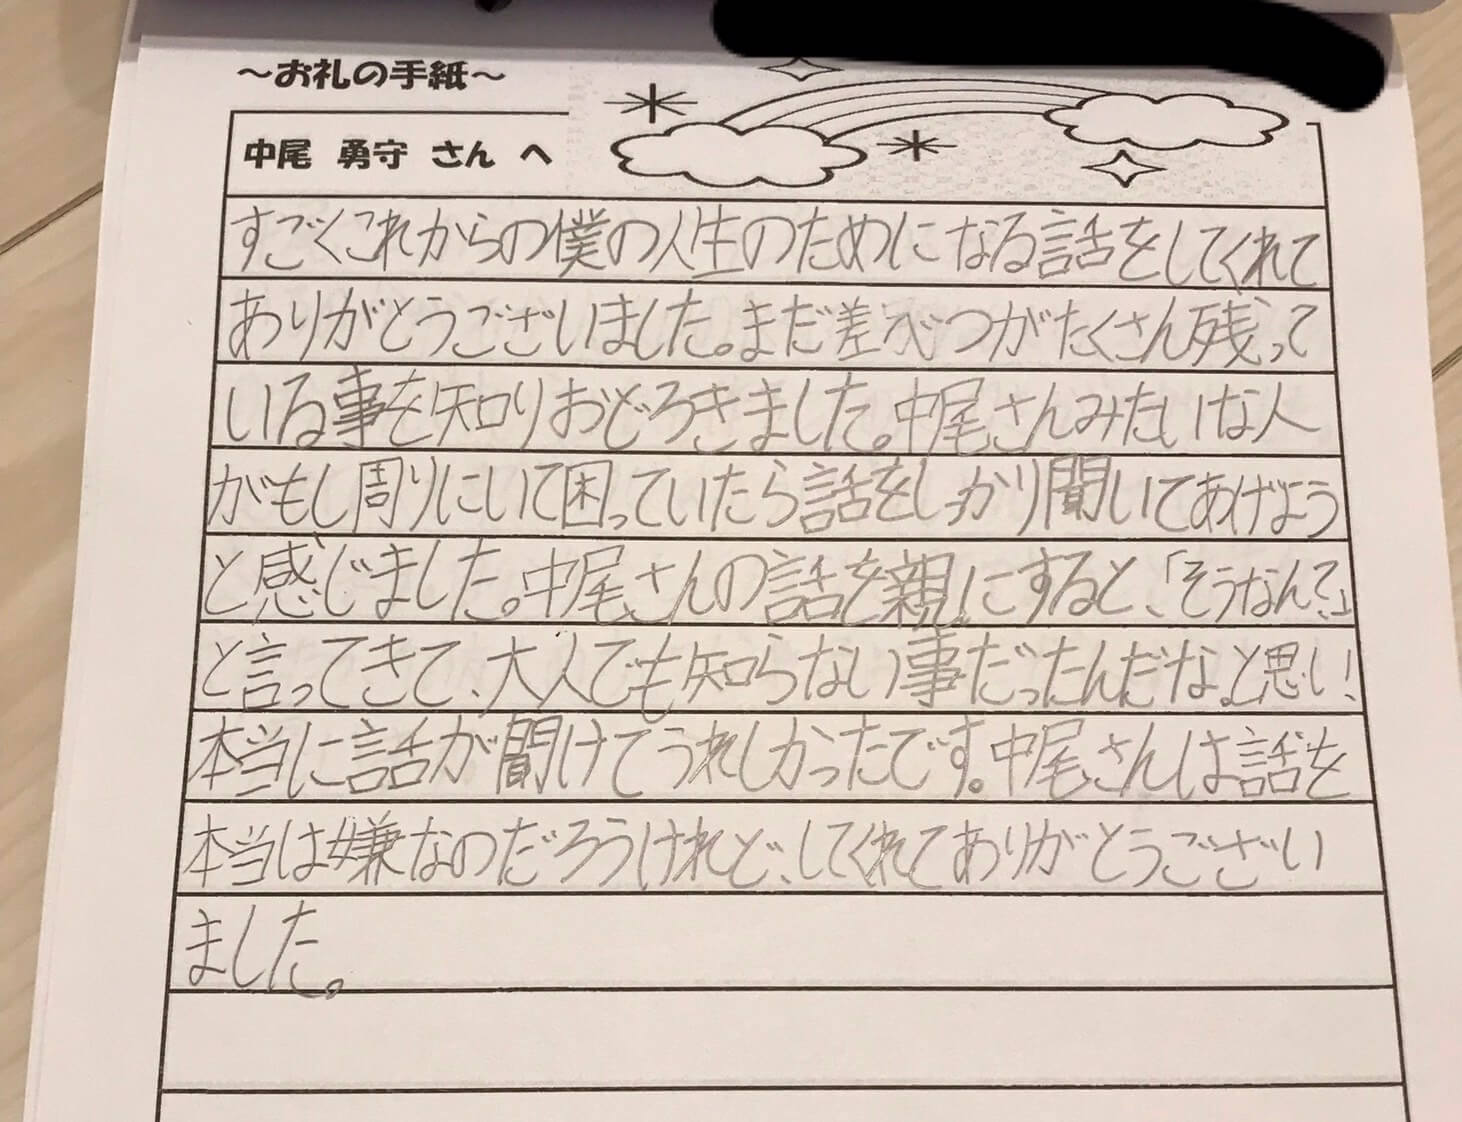 ～お礼の手紙～
中尾 勇守 さん へ
すごくこれからの僕の人生のためになる話をしてくれて
ありがとうございました。まだ差べつがたくさん残って
いる事を知りおどろきました。中尾さんみたいな人
がもし周りにいて困っていたら話をしっかり聞いてあげよう
と感じました。中尾さんの話を親にすると、「そうなんて」
と言ってきて、大人でも知らない事だったんだな。と思い!
本当に話が聞けてうれしかったです。中尾さんは話を
本当は嫌なのだろうけれど、してくれてありがとうござい
ました。